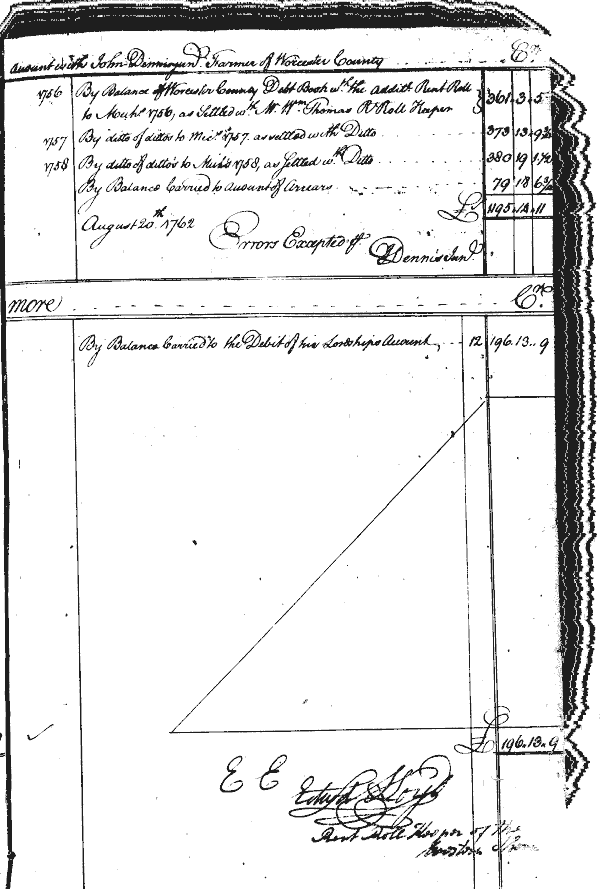 Account with John Dennis Junr. Farmer of Worcester County Cr.
1756 By Balance of Worcester County Debt Book wth. the addith. Rent Roll
to Michs. 1756, as Settled wth. Mr. Wm. Thomas Rt. Roll Keeper 361.3.5
1757 By ditto of ditto to Mics. 1757. as settled with Ditto 373 13.9¾
1758 By ditto of ditto's to Mich's 1758, as Settled wth. Ditto 380 19 1½
By Balance Carried to Account of Arrears 79 18 6¾
£ 1195.14.11
August 20th. 1762
Errors Excepted pr
J Dennis Junr.
more Cr.
By Balance Carried to the Debit of his Lordships Account 12 196.13..9
£ 196.13.9
E E
Edwd Lloyd
Rent Roll Keeper of the
Eastern Shore